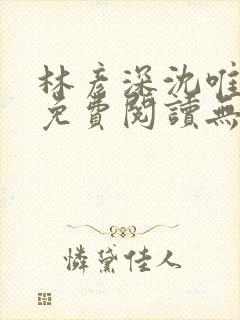 林彥深沈唯
免費閱讀無
憐黛佳人